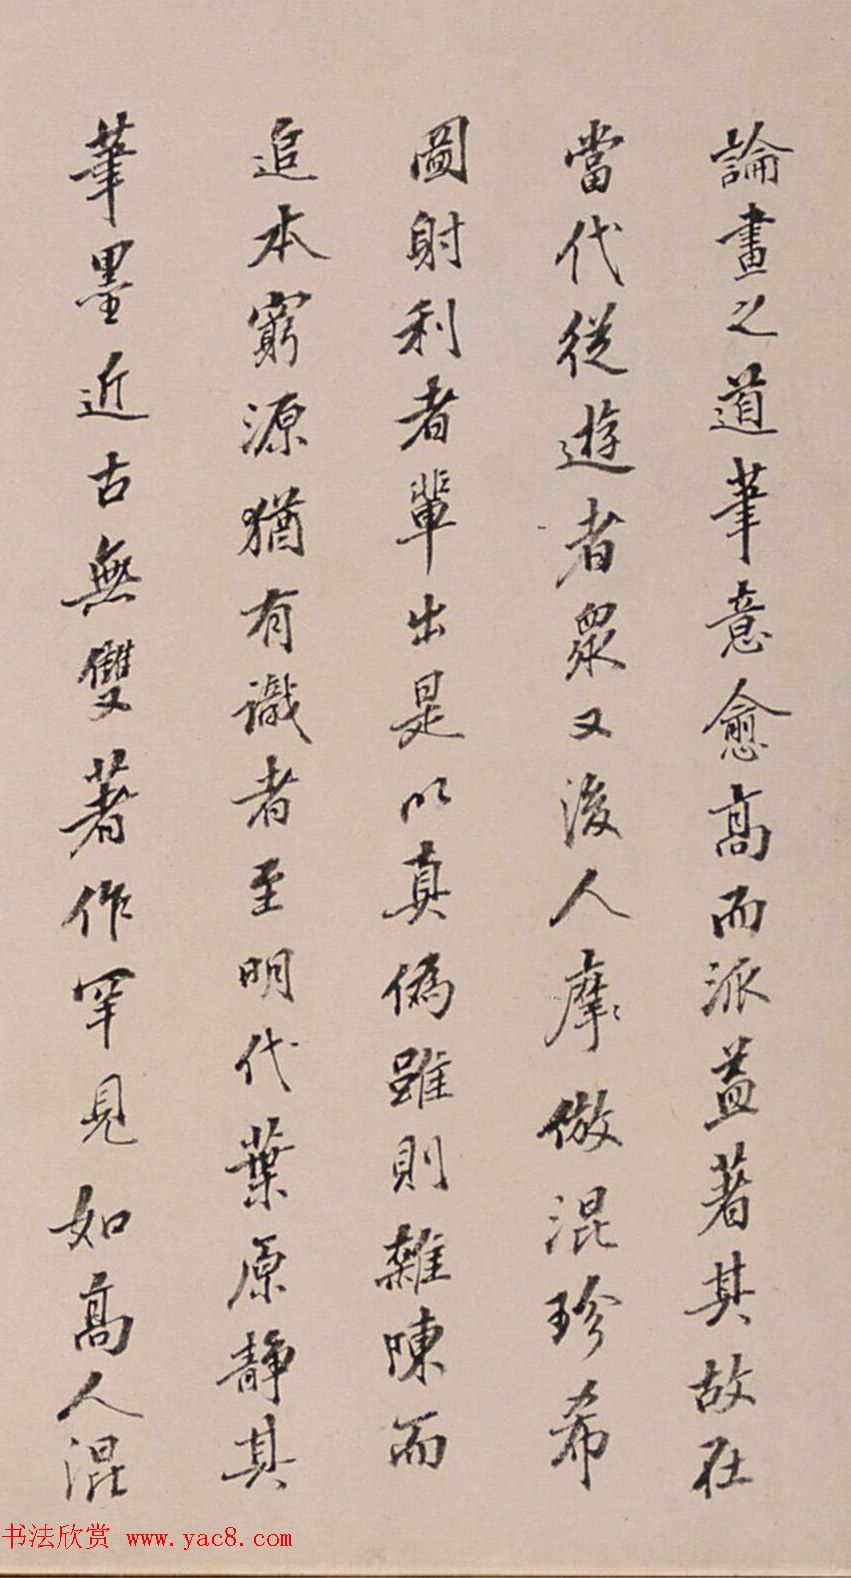 論畫之道筆意愈高而派益著其故在
當代從遊者衆又後人摩倣混珍希
圖射利者輩出是以真僞雖則雜陳而
追本窮源猶有識者至明代葉原靜其
筆墨近古無雙著作罕見如高人混
书法欣赏 www.yac8.com